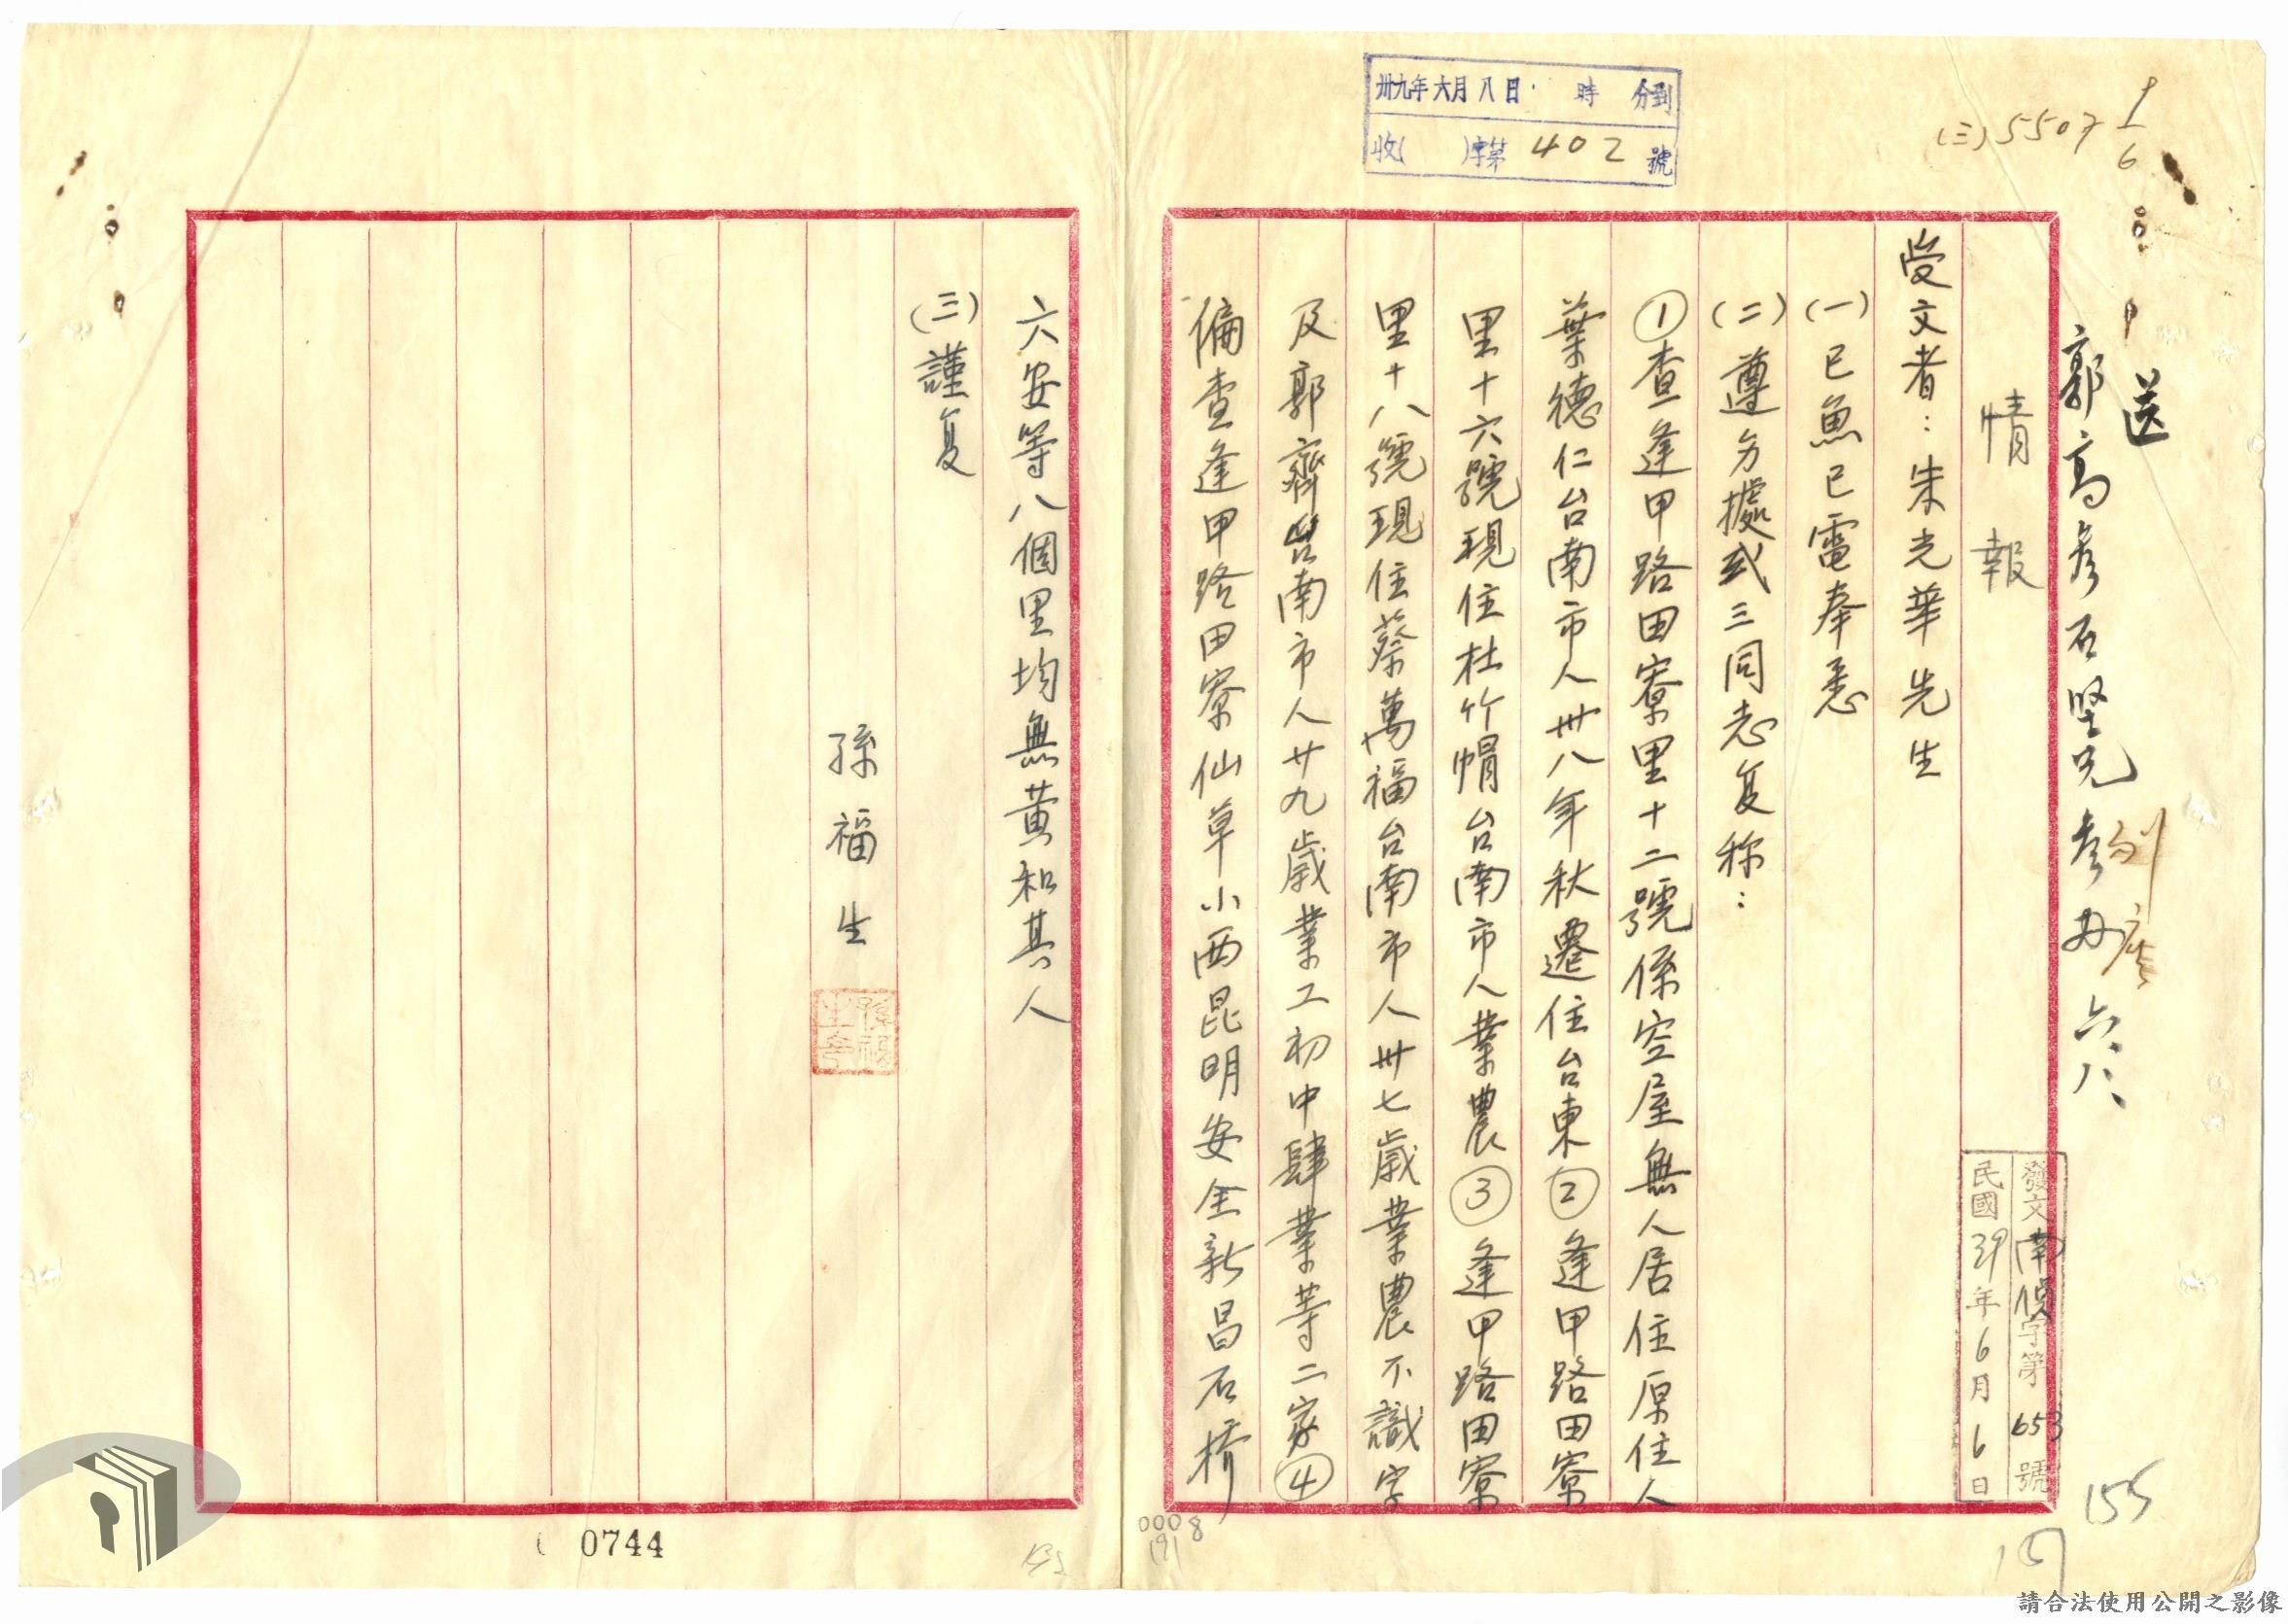 卅九年六月八日 時 分到
收( )字第402號
(三)5507
送
郭高彥石堅兄參办 六、八、
情報
發文南偵字第653號
民國39年6月6日
受文者：朱光華先生
(一)已魚已電奉悉
(二)遵另據或三同志复称：
①查逢甲路田寮里十二號係空屋無人居住原住人
葉德仁台南市人卅八年秋遷住台東②逢甲路田寮
里十六號現住杜竹帽台南市人業農③逢甲路田寮
里十八號現住蔡萬福台南市人卅七歲業農不識字
及郭齊台南市人廿九歲業工初中肆業等二家④
偏查逢甲路田寮仙草小西昆明安全新昌石橋
六安等八個里均無黃和其人
(三)謹复
孫福生
155
0008
191
0744
請合法使用公開之影像